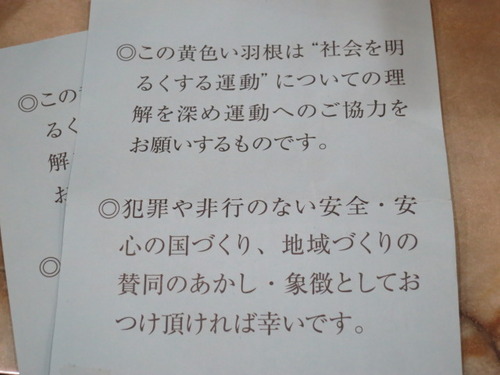 ◎この黄色い羽根は“社会を明
るくする運動”についての理
解を深め運動へのご協力を
お願いするものです。
◎犯罪や非行のない安全・安
心の国づくり、地域づくりの
賛同のあかし・象徴としてお
つけ頂ければ幸いです。
◎この
るく
解
お
◎